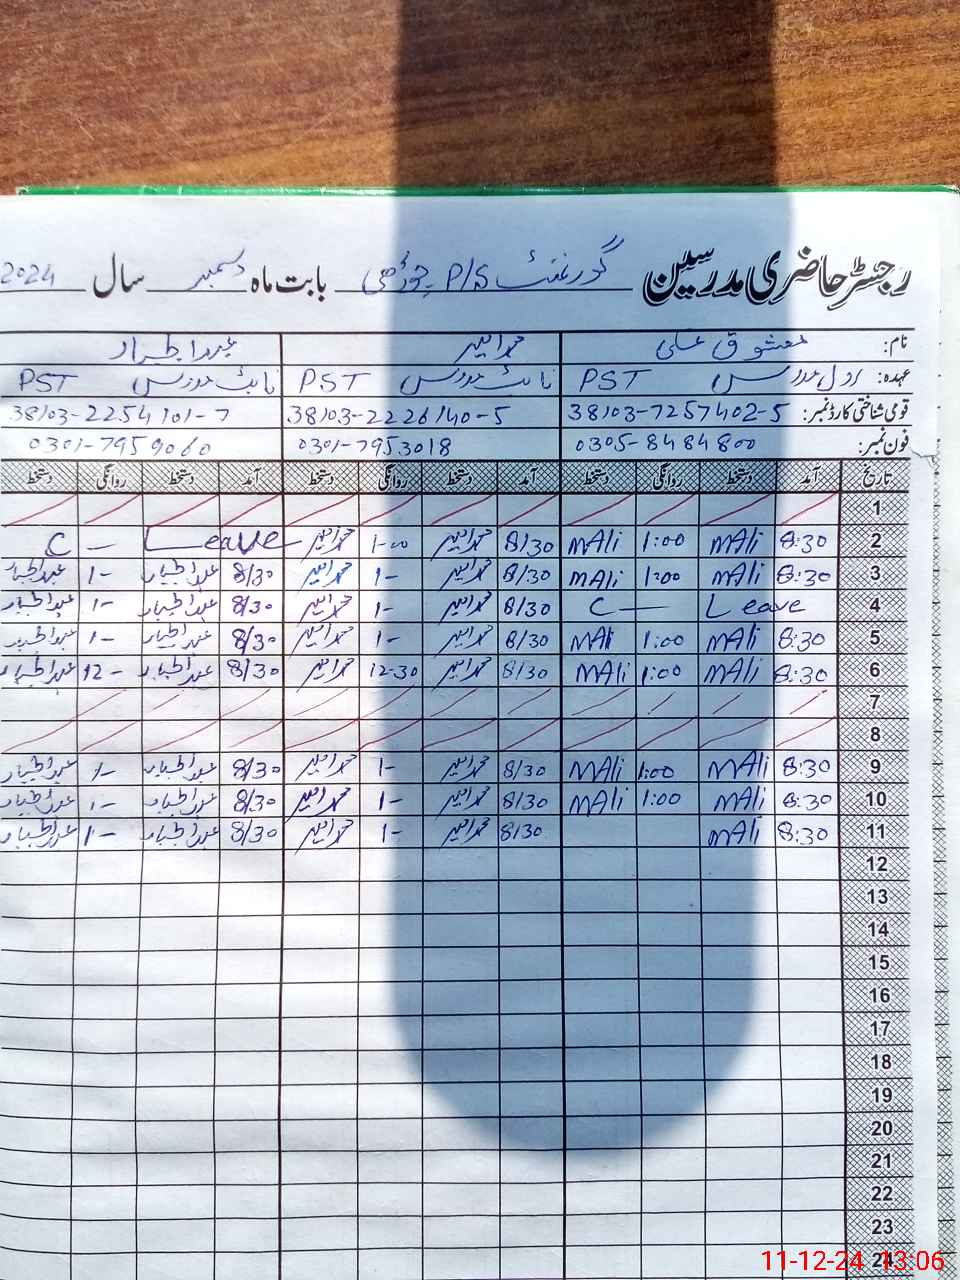 رجسٹر حاضری مدرسین گورنمنٹ P/S بابت ماہ دسمبر سال 2024
نام: معشوق علی محمد امیر عبدالجبار
عہدہ: رول مدرس PST نائٹ مدرس PST نائٹ مدرس PST
قومی شناختی کارڈ نمبر: 38103-7257402-5 38103-2226140-5 38103-2254101-7
فون نمبر: 0305-8484800 0301-7953018 0301-7959060
تاریخ آمد دستخط روانگی دستخط آمد دستخط روانگی دستخط آمد دستخط روانگی دستخط
1
2 8:30 MAli 1:00 MAli 8/30 محمد امیر 1-00 محمد امیر Leave — C
3 8:30 MAli 1:00 MAli 8/30 محمد امیر 1- محمد امیر 8/30 عبدالجبار 1- عبدالجبار
4 Leave — C 8/30 محمد امیر 1- محمد امیر 8/30 عبدالجبار 1- عبدالجبار
5 8:30 MAli 1:00 MAli 8/30 محمد امیر 1- محمد امیر 8/30 عبدالجبار 1- عبدالجبار
6 8:30 MAli 1:00 MAli 8/30 محمد امیر 12-30 محمد امیر 8/30 عبدالجبار 12- عبدالجبار
7
8
9 8:30 MAli 1:00 MAli 8/30 محمد امیر 1- محمد امیر 8/30 عبدالجبار 1- عبدالجبار
10 8:30 MAli 1:00 MAli 8/30 محمد امیر 1- محمد امیر 8/30 عبدالجبار 1- عبدالجبار
11 8:30 MAli 8/30 محمد امیر 1- محمد امیر 8/30 عبدالجبار 1- عبدالجبار
12
13
14
15
16
17
18
19
20
21
22
23
24
11-12-24 13:06